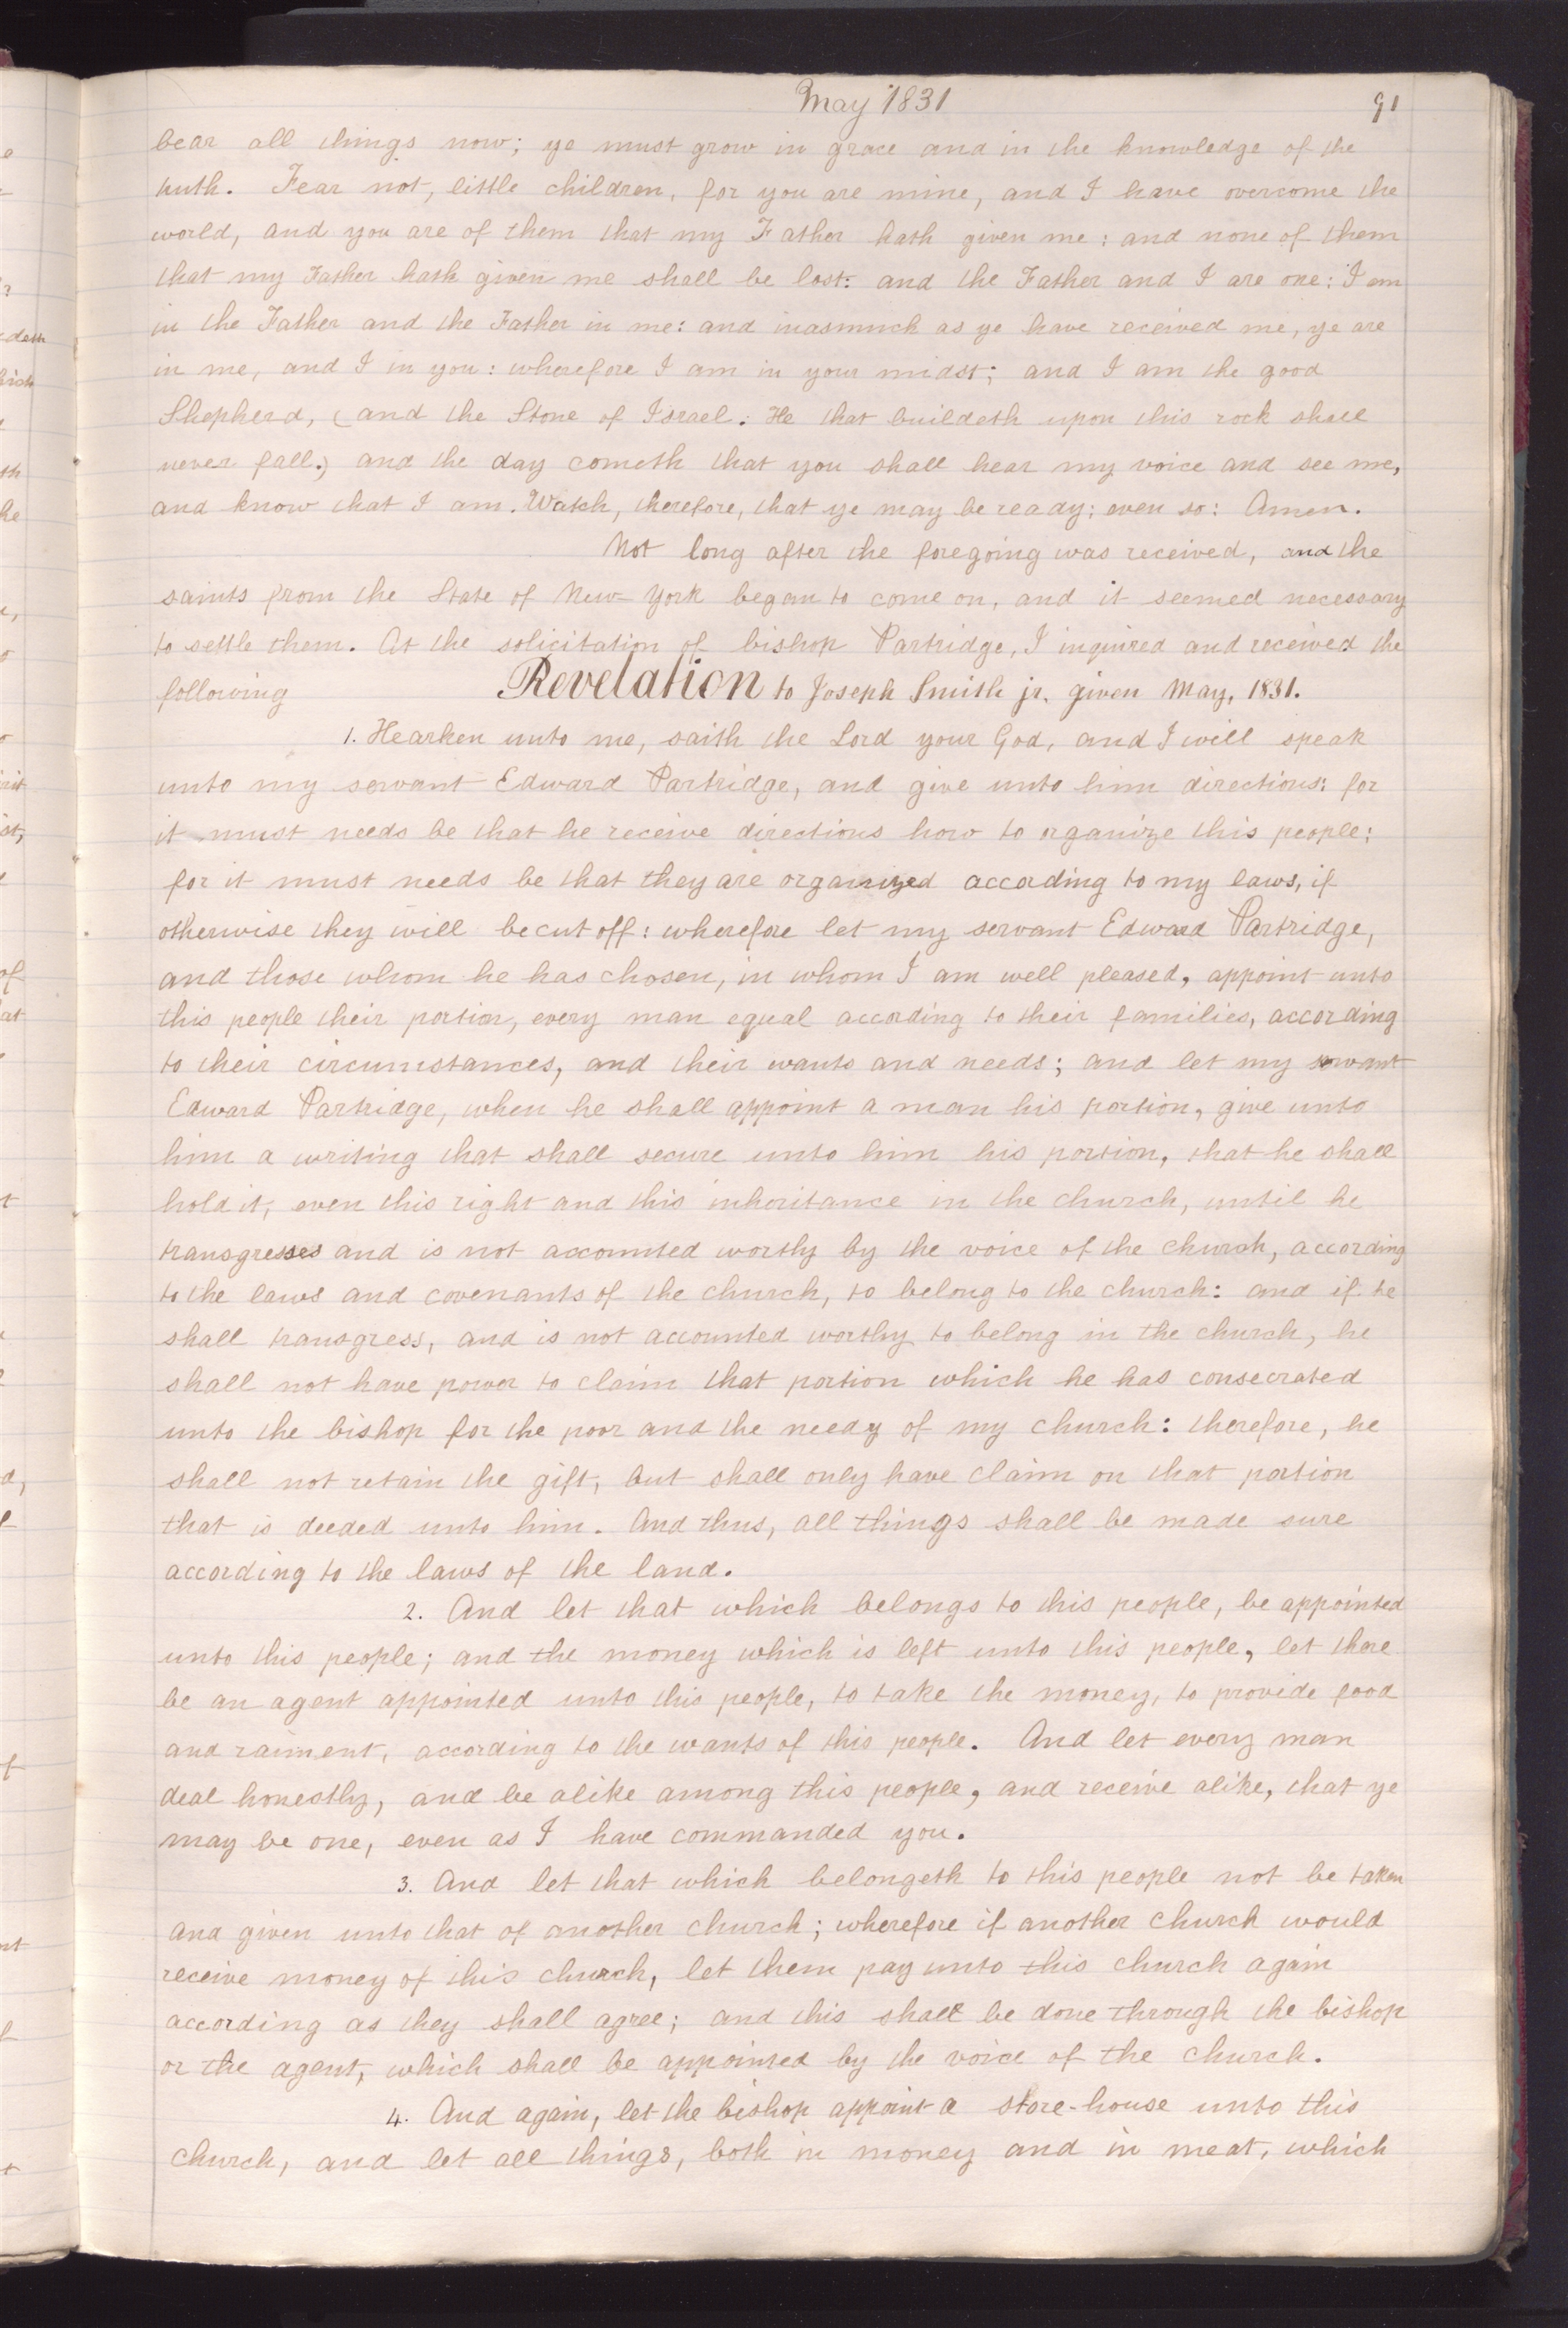 May 1831
91
bear all things now; ye must grow in grace and in the knowledge of the
truth. Fear not, little children, for you are mine, and I have overcome the
world, and you are of them that my Father hath given me: and none of them
that my Father hath given me shall be lost: and the Father and I are one: I am
in the Father and the Father in me: and inasmuch as ye have received me, ye are
in me, and I in you: wherefore I am in your midst; and I am the good
Shepherd, (and the Stone of Israel. He that buildeth upon this rock shall
never fall.) and the day cometh that you shall hear my voice and see me,
and know that I am. Watch, therefore, that ye may be ready: even so: Amen.
Not long after the foregoing was received, and the
saints from the State of New-York began to come on, and it seemed necessary
to settle them. At the solicitation of bishop Partridge, I inquired and received the
following Revelation to Joseph Smith jr. given May, 1831.
1. Hearken unto me, saith the Lord your God, and I will speak
unto my servant Edward Partridge, and give unto him directions: for
it must needs be that he receive directions how to organize this people;
for it must needs be that they are organized according to my laws, if
otherwise they will be cut off: wherefore let my servant Edward Partridge,
and those whom he has chosen, in whom I am well pleased, appoint unto
this people their portion, every man equal according to their families, according
to their circumstances, and their wants and needs; and let my servant
Edward Partridge, when he shall appoint a man his portion, give unto
him a writing that shall secure unto him his portion, that he shall
hold it, even this right and this inheritance in the church, until he
transgresses and is not accounted worthy by the voice of the church, according
to the laws and covenants of the church, to belong to the church: and if he
shall transgress, and is not accounted worthy to belong in the church, he
shall not have power to claim that portion which he has consecrated
unto the bishop for the poor and the needy of my church: therefore, he
shall not retain the gift, but shall only have claim on that portion
that is deeded unto him. And thus, all things shall be made sure
according to the laws of the land.
2. And let that which belongs to this people, be appointed
unto this people; and the money which is left unto this people, let there
be an agent appointed unto this people, to take the money, to provide food
and raiment, according to the wants of this people. And let every man
deal honestly, and be alike among this people, and receive alike, that ye
may be one, even as I have commanded you.
3. And let that which belongeth to this people not be taken
and given unto that of another church; wherefore if another church would
receive money of this church, let them pay unto this church again
according as they shall agree; and this shall be done through the bishop
or the agent, which shall be appointed by the voice of the church.
4. And again, let the bishop appoint a store-house unto this
church, and let all things, both in money and in meat, which